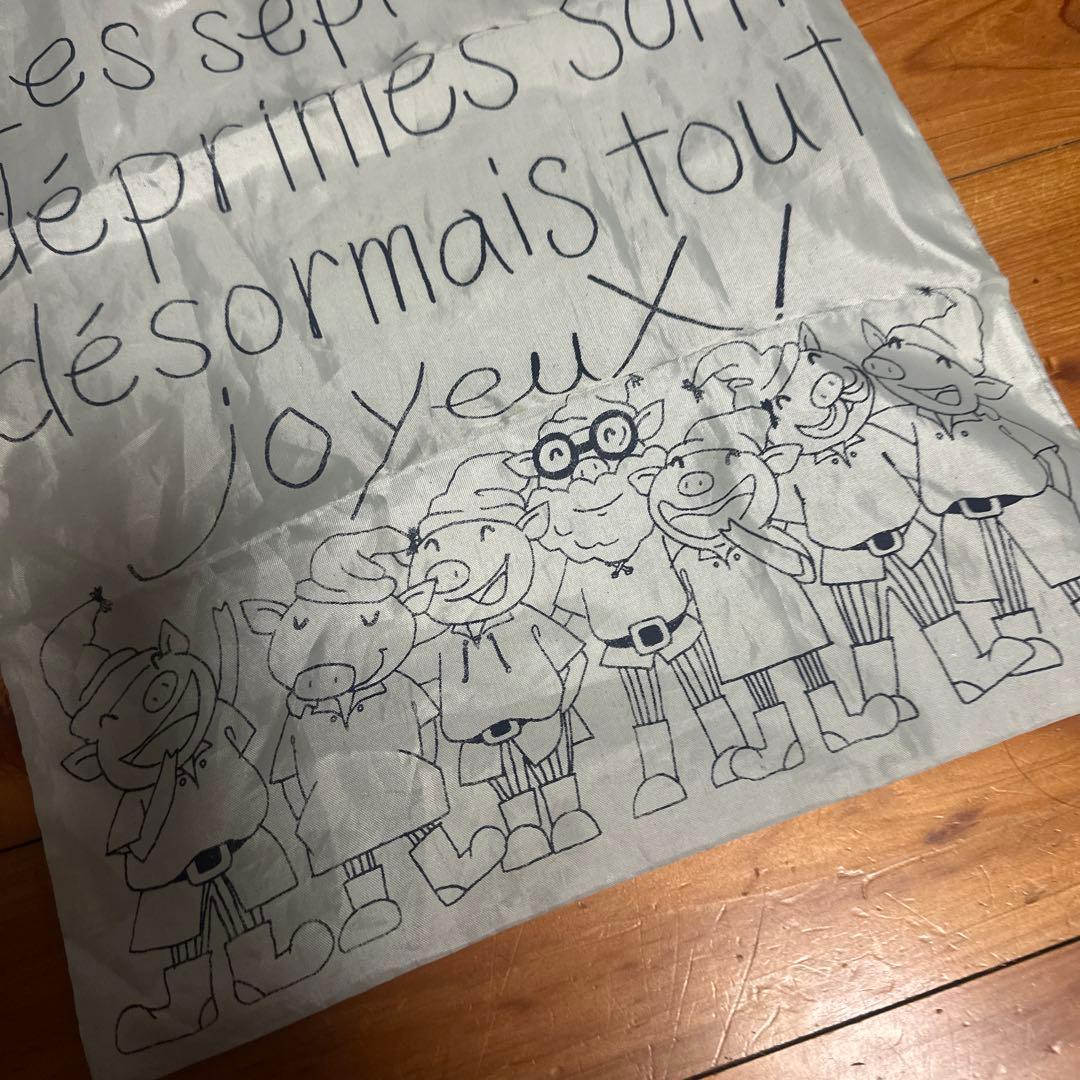 Les sept
déprimés sont
désormais tout
joyeux !